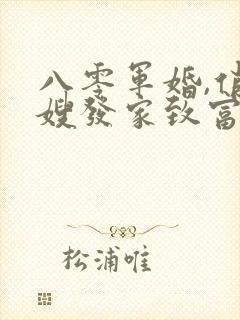 八零軍婚,俏
嫂發家致富
松浦唯